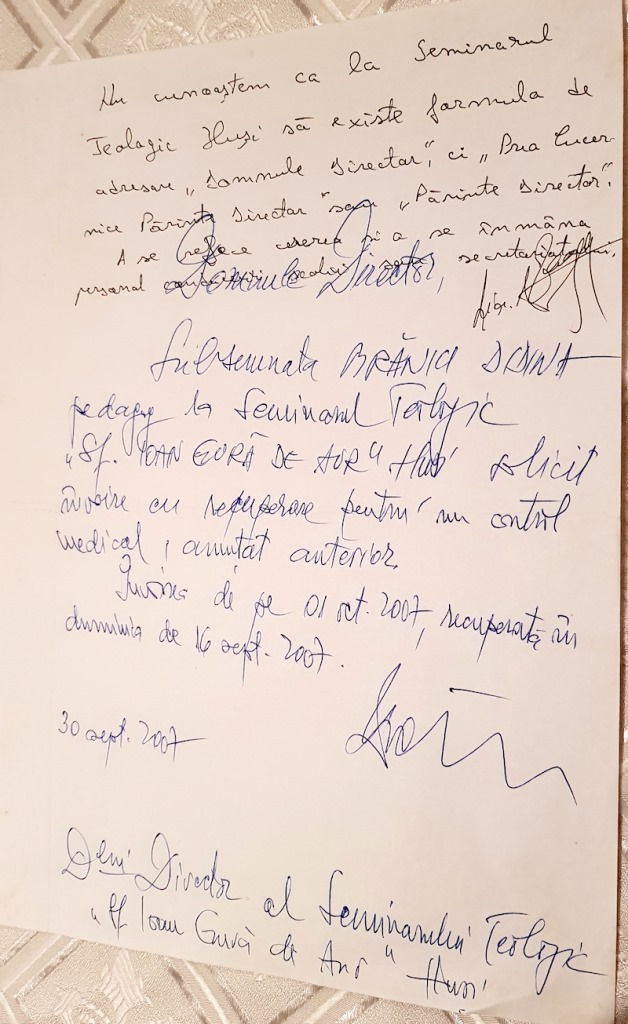 Nu cunoaștem ca la Seminarul
Teologic Huși să existe formula de
adresare „Domnule Director", ci „Prea Cucer-
nice Părinte Director" sau „Părinte Director".
A se reface cererea și a se înmâna
personal secretariatului.
Domnule Director,
Subsemnata BRĂNICI DOINA
pedagog la Seminarul Teologic
„Sf. IOAN GURĂ DE AUR" Huși solicit
învoire cu recuperare pentru un control
medical, anunțat anterior.
Învoirea de pe 01 oct. 2007, recuperată în
duminica de 16 sept. 2007.
30 sept. 2007
Dlui Director al Seminarului Teologic
„Sf Ioan Gură de Aur" Huși